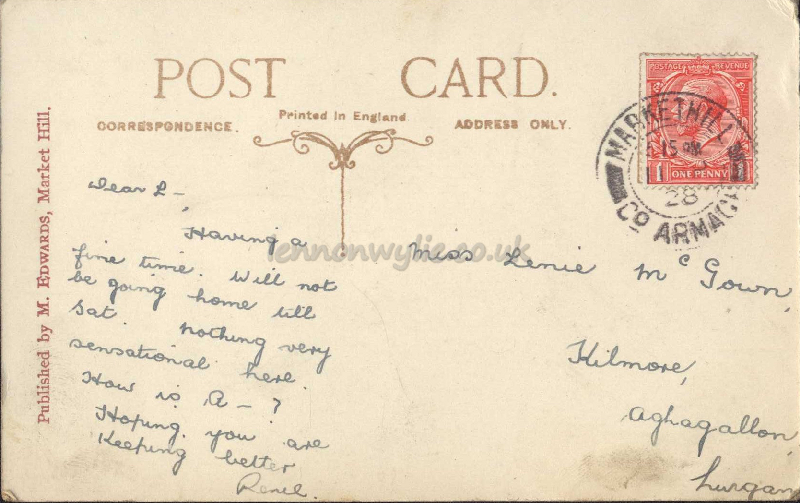 POST CARD.
Printed in England
CORRESPONDENCE.
ADDRESS ONLY.
Published by M. EDWARDS, Market Hill.
POSTAGE REVENUE
ONE PENNY
MARKETHILL
28
CO ARMAGH
lennonwylie.co.uk
Dear L-
Having a
fine time. Will not
be going home till
Sat. Nothing very
sensational here.
How is A- ?
Hoping you are
Keeping better
Miss Lenie McGown,
Kilmore,
Aghagallon,
Lurgan